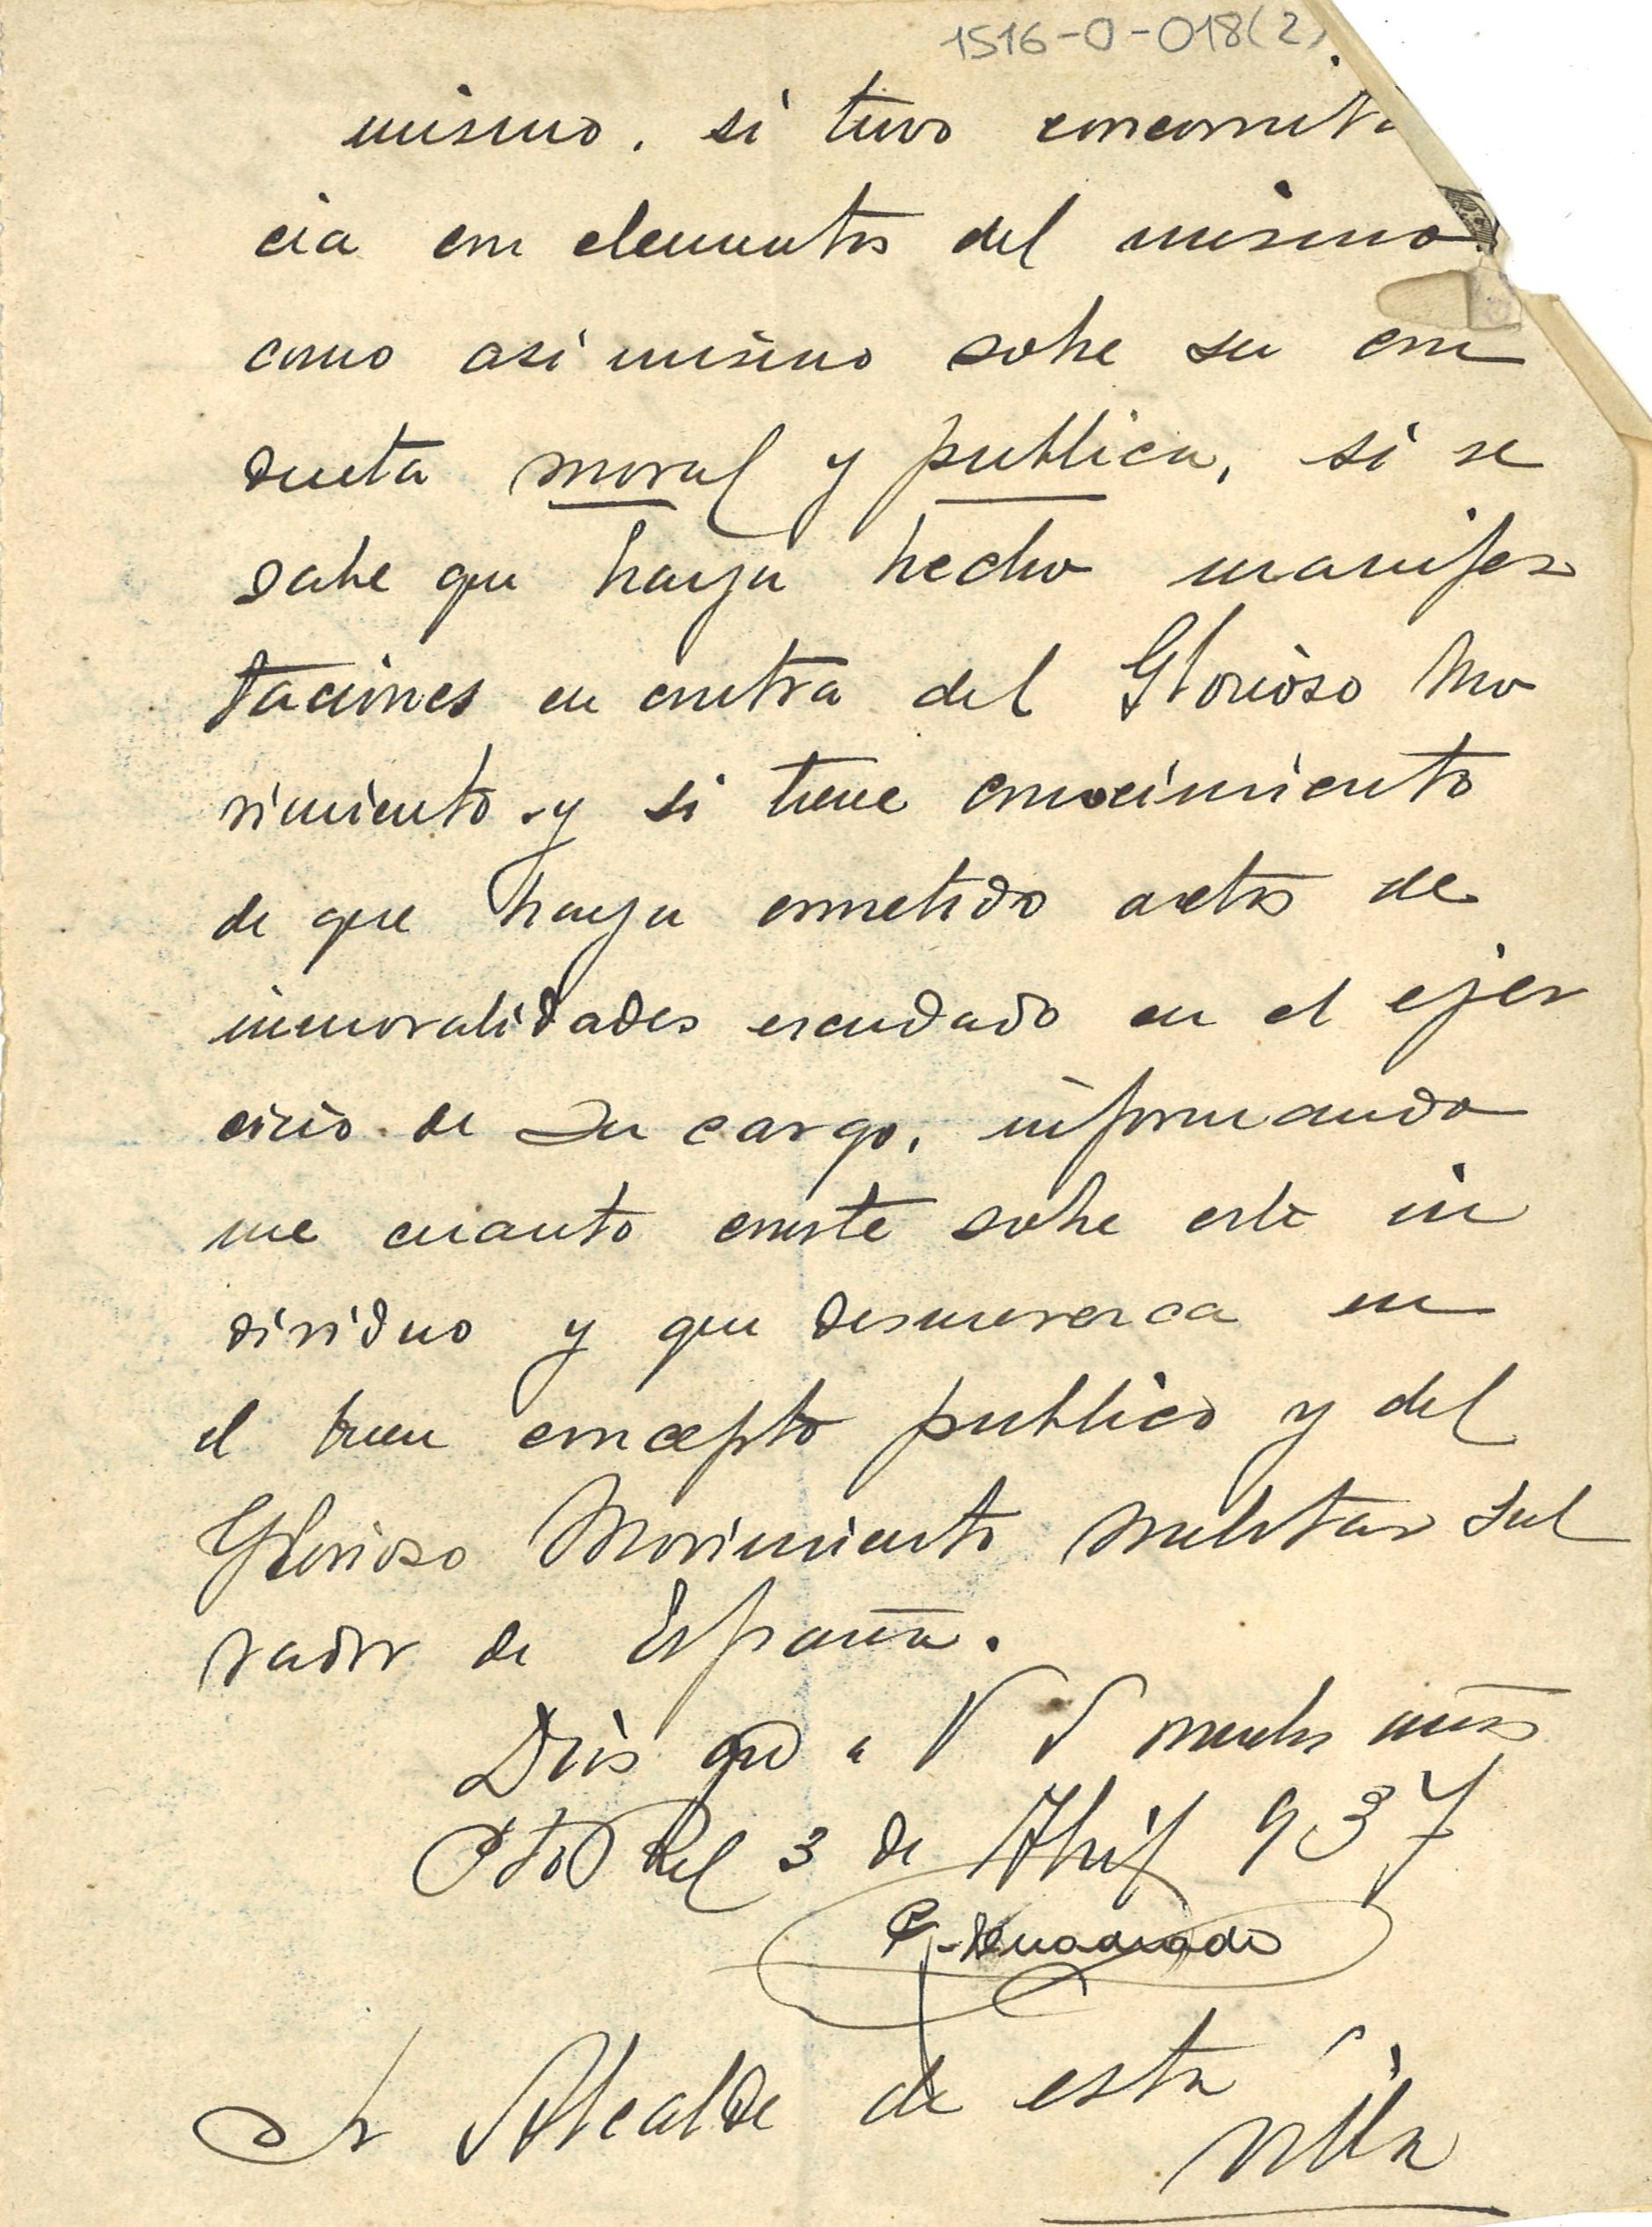 1516-0-018(2)
mismo, si tuvo concomita
cia con elementos del mismo.
como asi mismo sobre su con
ducta moral y publica, si se
sabe que haya hecho manifes
taciones en contra del Glorioso Mo
vimiento y si tiene conocimiento
de que haya cometido actos de
inmoralidades escudado en el ejer
cicio de su cargo, informando
me cuanto conste sobre este in
dividuo y que desmerezca en
el buen concepto publico y del
Glorioso Movimiento Militar Sal
vador de España.
Dios gue a V S muchos años
Pto Rel 3 de Abril 937
Sr Alcalde de esta
Villa